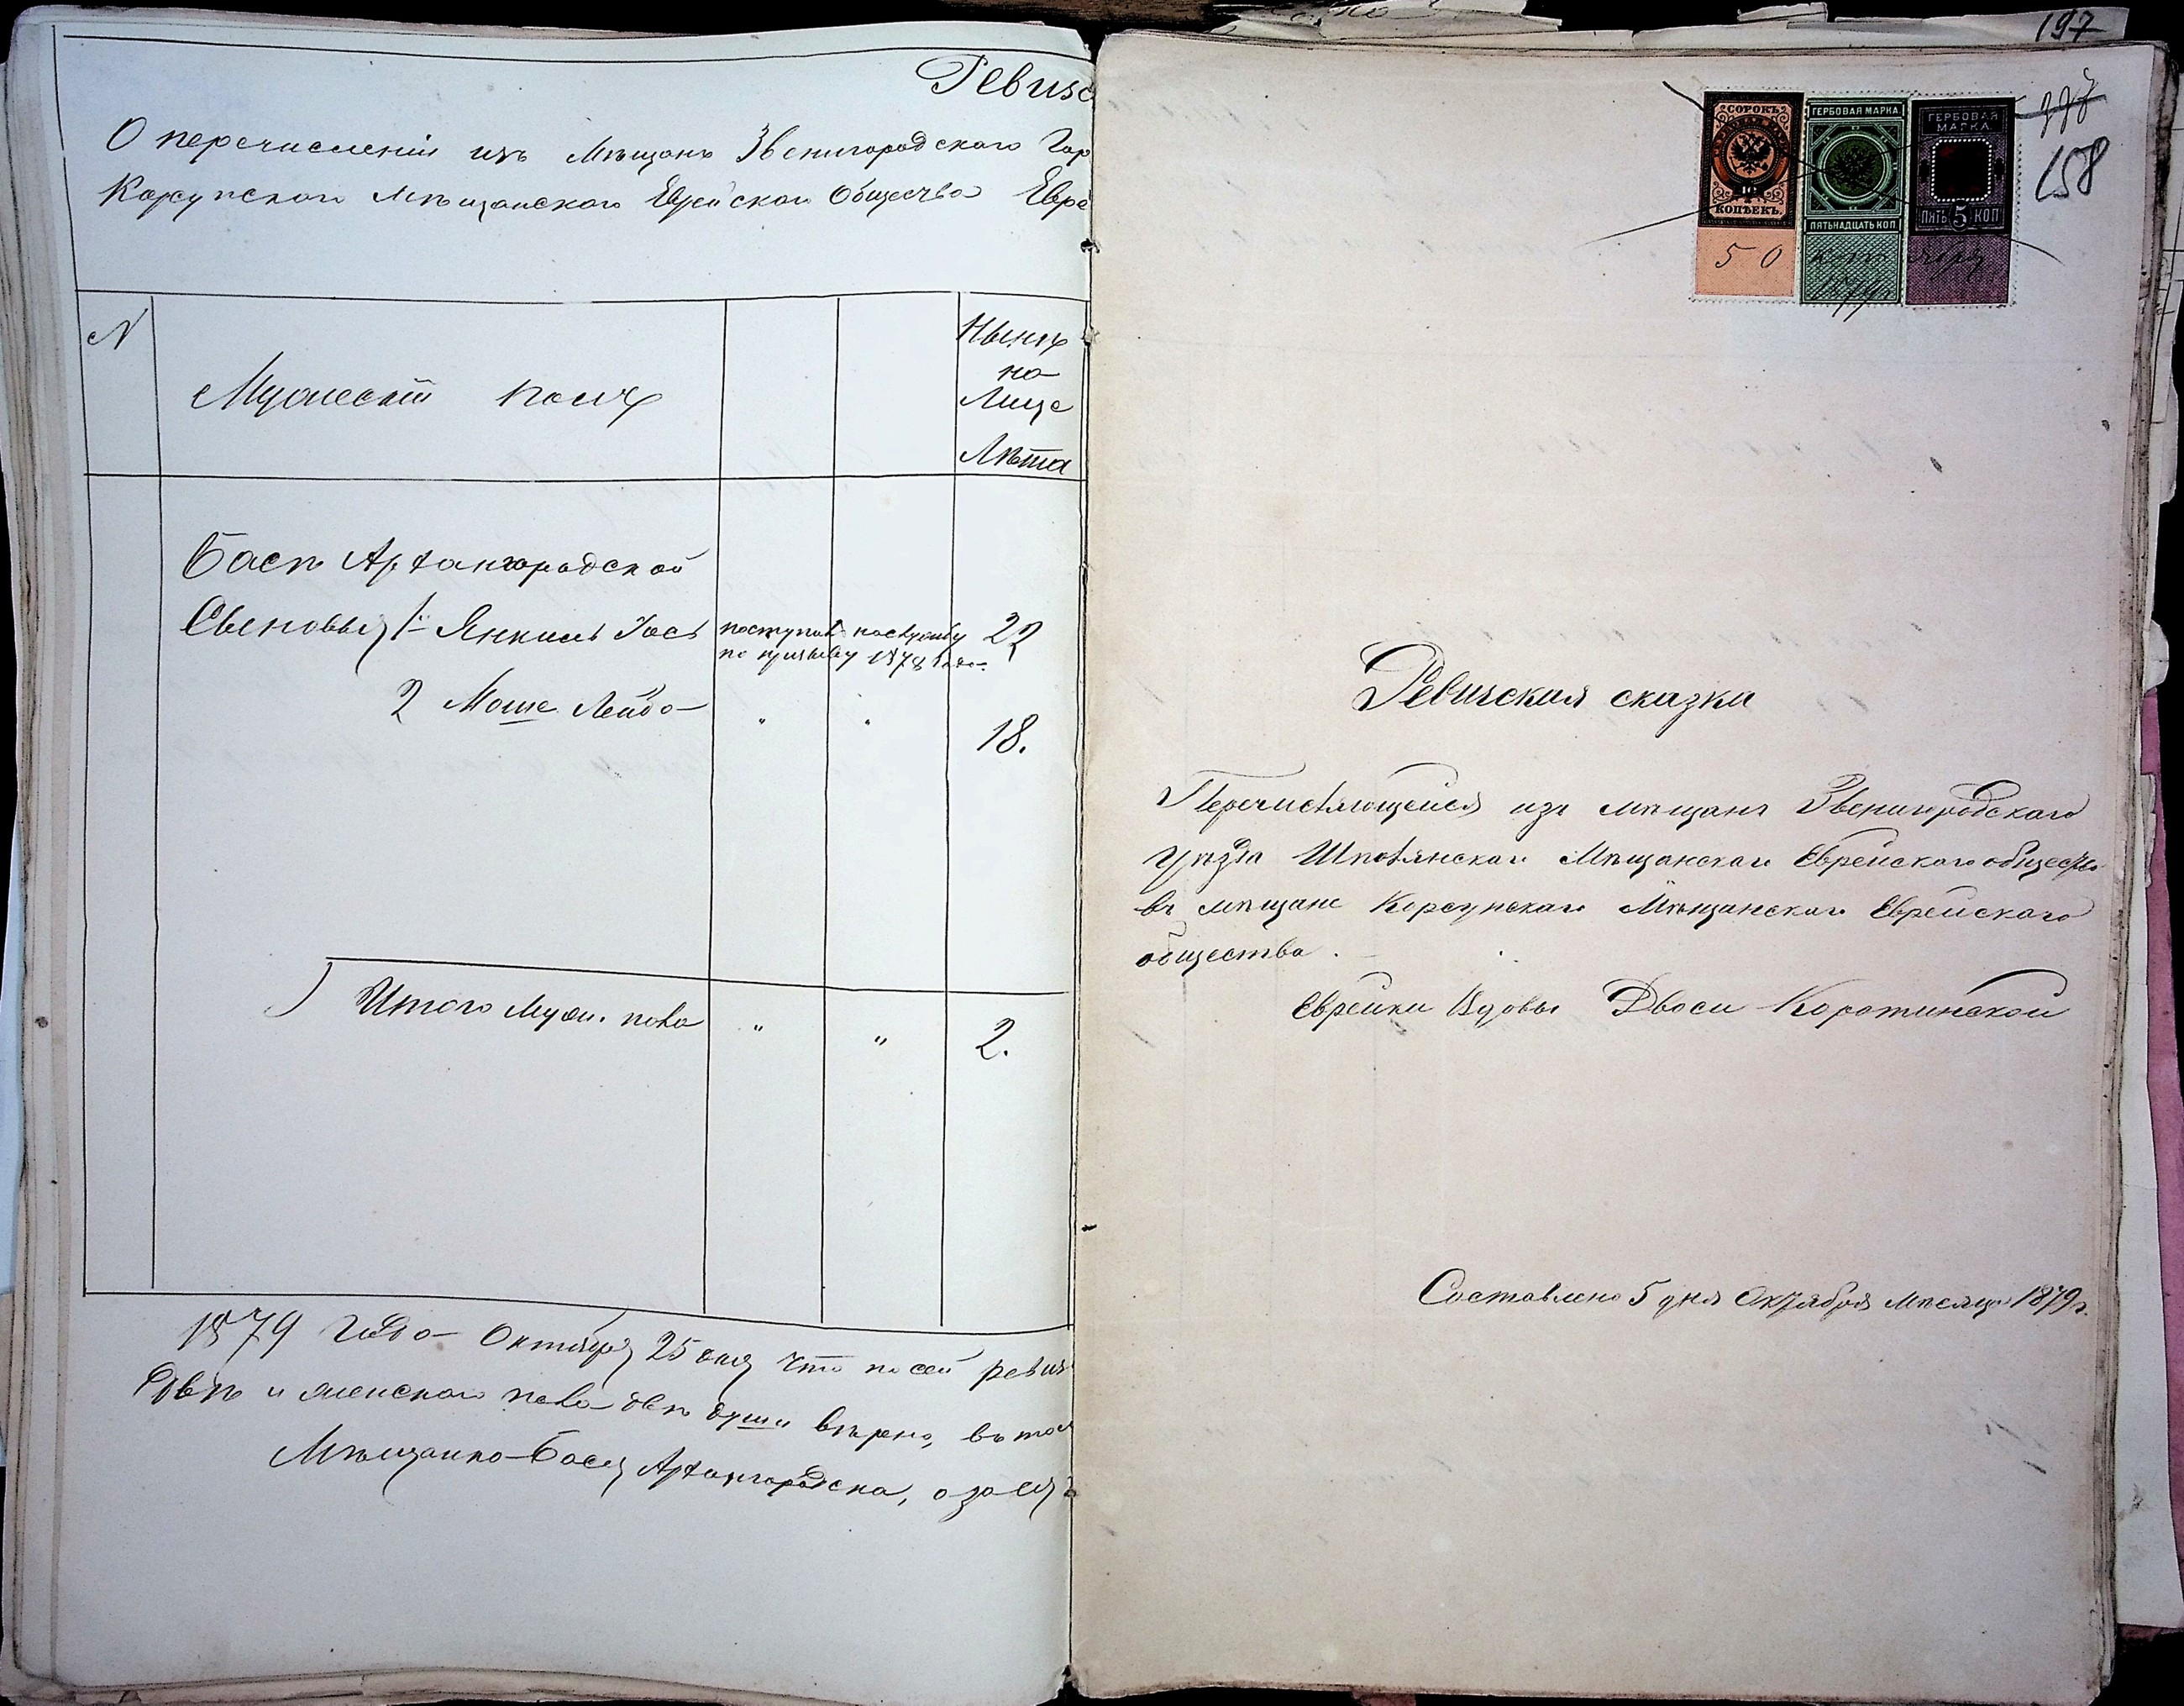 Ревизс
О перечисленіи изъ Мѣщанъ Звенигородского Гор
Корсунского Мѣщанского Еврейского Общества Евре
N
Мужескій полъ
Нынѣ
на
Лице
Лѣта
Баси Архангородской
Сыновья 1 Янкель Іось поступилъ на службу 22
по призыву 1878 года
2 Мошe Лейба " " 18.
Итого муж. пола " " 2.
1879 года Октября 25 дня что по сей ревиз
двѣ и женского пола двѣ души вѣрно, въ том
Мѣщанка Бася Архангородска, а за ея
197
158
СОРОКЪ
КОПѢЕКЪ
ГЕРБОВАЯ МАРКА
ПЯТЬНАДЦАТЬ КОП
ГЕРБОВАЯ
МАРКА
ПЯТЬ 5 КОП
50
1879
Ревизская сказка
Перечисляющейся изъ мѣщанъ Звенигородскаго
уѣзда Шполянскаго Мѣщанскаго Еврейскаго общества
въ мѣщане Корсунскаго Мѣщанскаго Еврейскаго
общества.
Еврейки Вдовы Двоси Коротинской
Составлено 5 дня Октября Мѣсяца 1879 г.